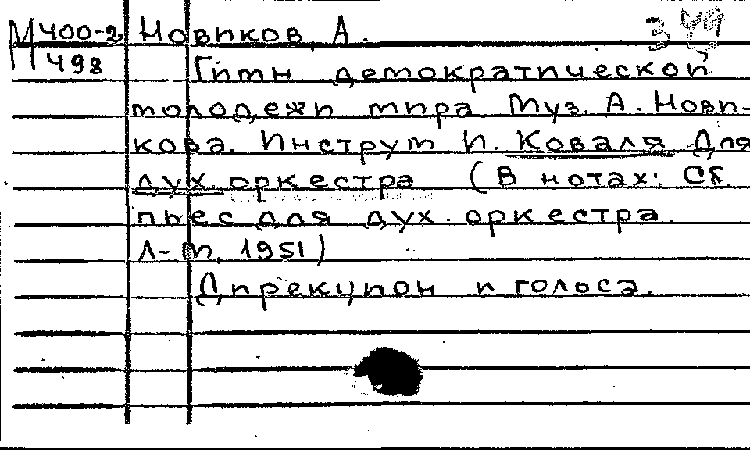 М 400-2 Новиков, А. 349
498 Гимн демократической
молодежи мира. Муз. А. Нови-
кова. Инструм. И. Коваля для
дух. оркестра (В нотах: Сб.
пьес для дух. оркестра.
Л-м, 1951)
Дирекцион и голоса.